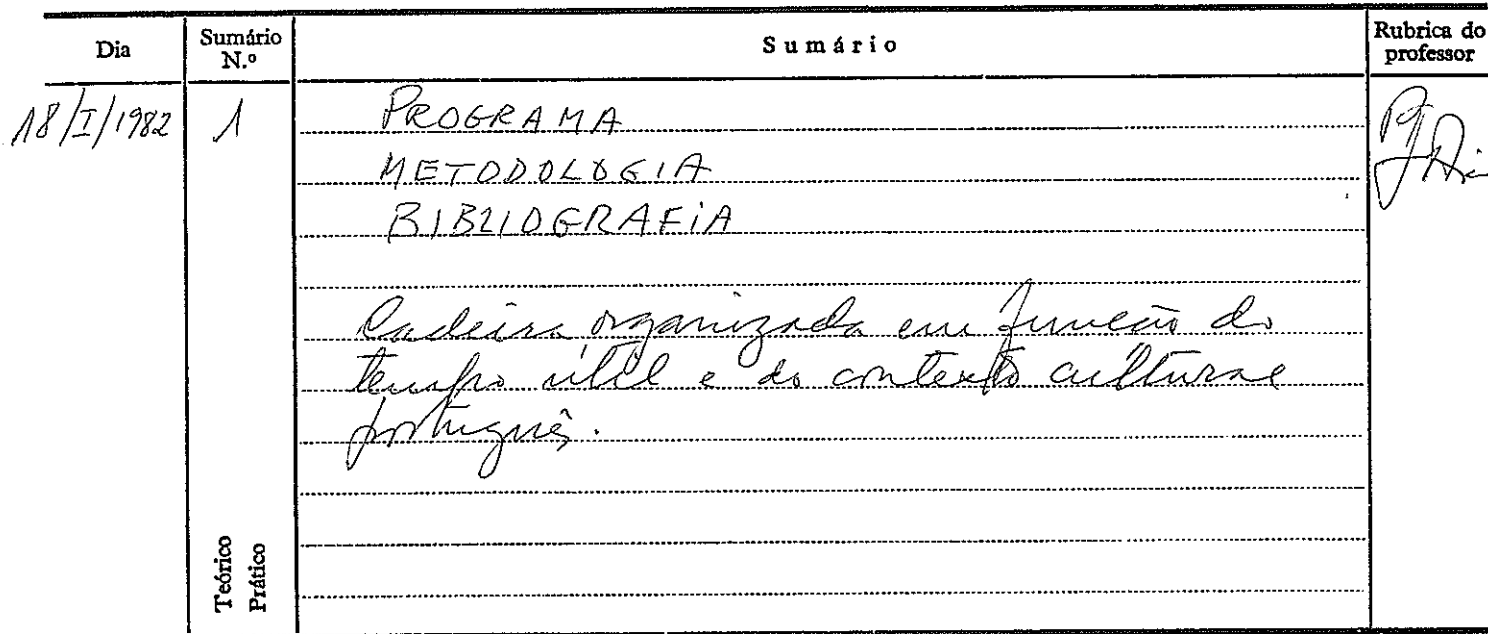 Dia
Sumário
N.º
Sumário
Rubrica do
professor
18/I/1982
1
PROGRAMA
METODOLOGIA
BIBLIOGRAFIA
Cadeira organizada em função do
tempo útil e do contexto cultural
português.
Teórico
Prático